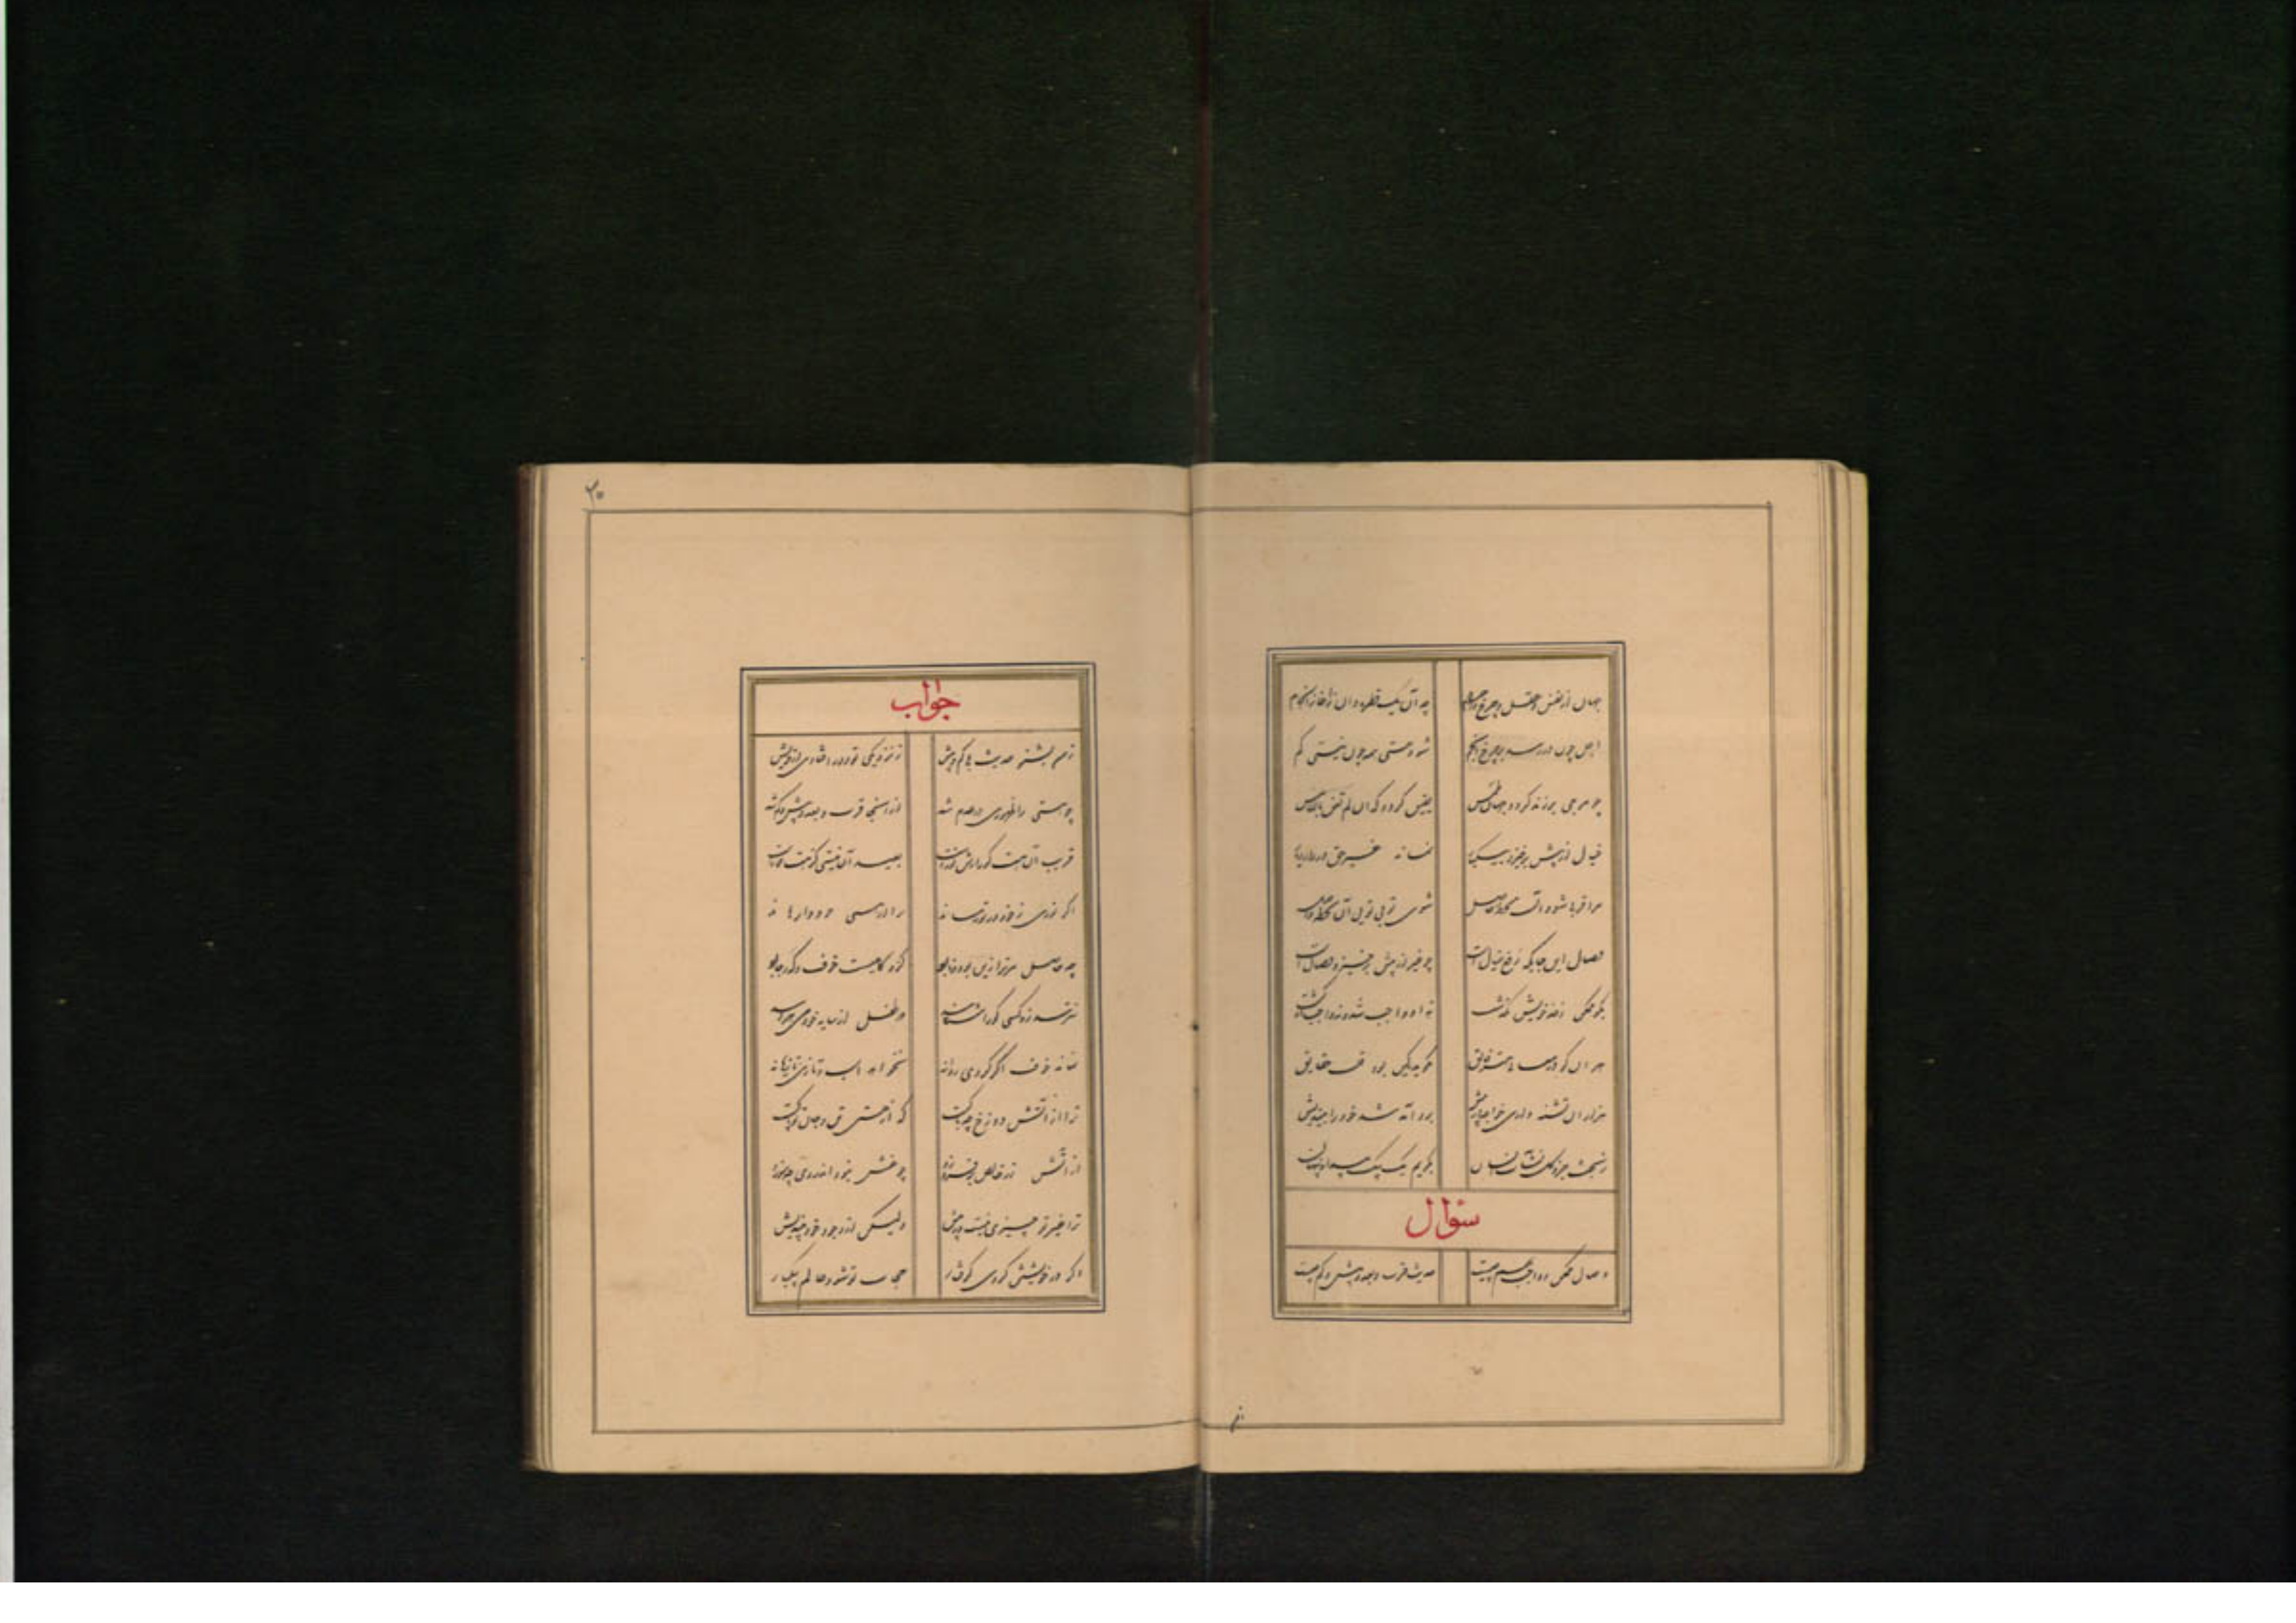 جهان از نفس و عقل و چرخ و اجرام چه آن یک قطره دان ز آغاز و انجام
اجل چون در رسد بر چرخ و انجم شود هستی همه چون نیستی گم
چو موجی بر زند گردد جهان طمس یقین گردد کان لم تغن بالامس
خیال از پیش برخیزد بیکبار نماند غیر حق در دار دیار
ترا قربی شود آن لحظه حاصل شوی تو بی توئی آن لحظه واصل
وصال این جایگه رفع خیالست چو غیر از پیش برخیزد وصالست
مگو ممکن ز حد خویش بگذشت نه او واجب شد و نه واجب او گشت
هر آن کو در معانیست فایق نگوید کین بود قلب حقایق
هزاران نشئه داری خواجه در پیش برو آمد شد خود را بیندیش
ز بحث جزو و کل نشآت انسان بگویم یک بیک پیدا و پنهان
سئوال
وصال ممکن و واجب بهم چیست حدیث قرب و بعد و بیش و کم چیست
جواب
ز من بشنو حدیث بی کم و بیش ز نزدیکی تو دور افتادی از خویش
چو هستی را ظهوری در عدم شد از آنجا قرب و بعد و بیش و کم شد
قریب آن هست کورا رش نورست بعید آن نیستی کز هست دورست
اگر نوری ز خود در تو رساند ترا از هستی خود وارهاند
چه حاصل مر ترا زین بود و نابود کزو گاهیت خوف و گه رجا بود
نترسد زو کسی کورا شناسد که طفل از سایه خود می هراسد
نماند خوف اگر گردی روانه نخواهد اسب تازی تازیانه
ترا از آتش دوزخ چه باکست که از هستی تن و جان تو پاکست
از آتش زر خالص برفروزد چو غشی نبود اندر وی چه سوزد
ترا غیر تو چیزی نیست در پیش ولیکن از وجود خود بیندیش
اگر در خویشتن گردی گرفتار حجاب تو شود عالم بیکبار